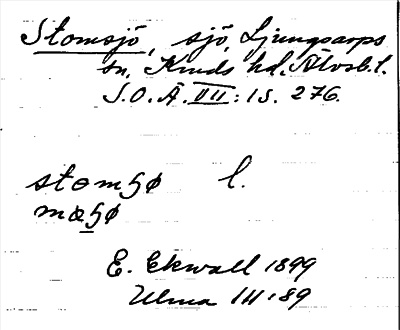 Stomsjö, sjö, Ljungsarps
sn, Kinds hd. Älvsb. l.
S.O.Ä. VII: 1 S. 276.
stomɧø l.
mæɧø
E. Ekwall 1899
Ulma 111:89